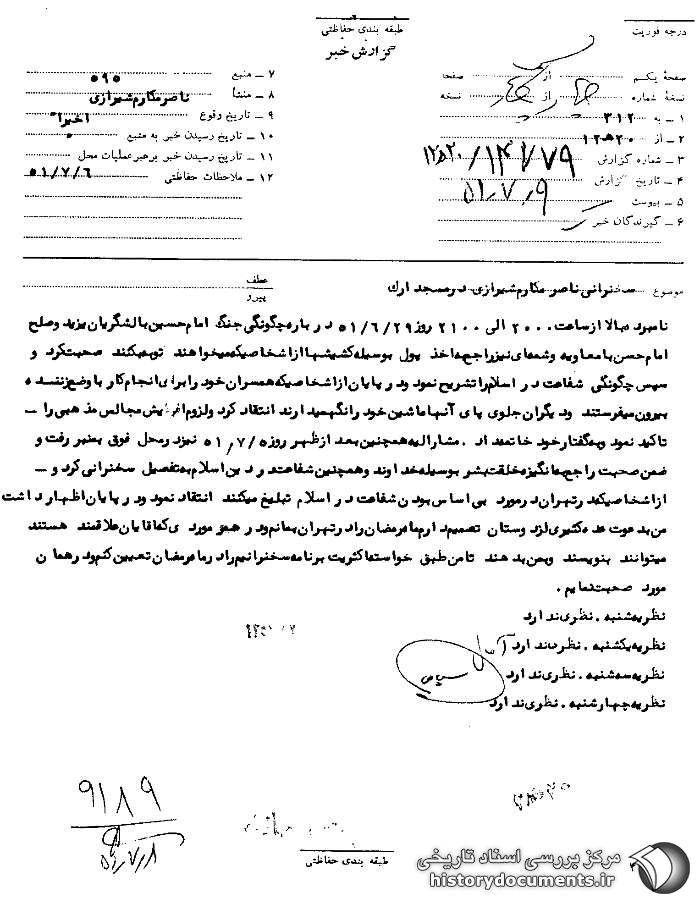 درجه فوریت
طبقه بندی حفاظتی
گزارش خبر
صفحهٔ یکم از صفحه
نسخهٔ شماره از نسخه
۱ ـ به ۳۱۲
۲ ـ از ۲۰ه۱۲
۳ ـ شماره گزارش ۱۲ه۲۰/۱۴۷۷۹
۴ ـ تاریخ گزارش ۵۱٫۷٫۹
۵ ـ پیوست
۶ ـ گیرندگان خبر
۷ ـ منبع ۵۹۵
۸ ـ منشأ ناصر مکارم شیرازی
۹ ـ تاریخ وقوع اخیراً
۱۰ ـ تاریخ رسیدن خبر به منبع
۱۱ ـ تاریخ رسیدن خبر برهبر عملیات محل
۱۲ ـ ملاحظات حفاظتی ۵۱/۷/۶
موضوع سخنرانی ناصر مکارم شیرازی در مسجد ارك
عطف
پیرو
نامبرده بالا از ساعت ۲۰۰۰ الی ۲۱۰۰ روز ۵۱/۶/۲۹ در باره چگونگی جنگ امام حسین با لشگریان یزید و صلح
امام حسن با معاویه و شمه‌ای نیز راجع به اخذ پول بوسیله کشیشها از اشخاصیکه میخواهند توبه بکنند صحبت کرد و
سپس چگونگی شفاعت در اسلام را تشریح نمود و در پایان از اشخاصیکه همسران خود را برای انجام کار با وضع زننده
بیرون میفرستند و دیگران جلوی پای آنها ماشین خود را نگهمیدارند انتقاد کرد و لزوم افزایش مجالس مذهبی را ــ
تاکید نمود و به گفتار خود خاتمه داد. مشارالیه همچنین بعد از ظهر روز ۵۱/۷/۵ نیز در محل فوق بمنبر رفت و
ضمن صحبت راجع به انگیزه خلقت بشر بوسیله خداوند و همچنین شفاعت در دین اسلام به تفصیل سخنرانی کرد و ــ
از اشخاصیکه در تهران در مورد بی اساس بودن شفاعت در اسلام تبلیغ میکنند انتقاد نمود و در پایان اظهار داشت
من بدعوت عده کثیری از دوستان تصمیم دارم ماه رمضان را در تهران بمانم و در هر مورد ی که آقایان علاقمند هستند
میتوانند بنویسند و بمن بدهند تا من طبق خواسته اکثریت برنامه سخنرانیم را در ماه رمضان تعیین کنم و در همان
مورد صحبت نمایم.
نظریه شنبه. نظری ندارد
نظریه یکشنبه. نظری ندارد
نظریه سه شنبه. نظری ندارد
نظریه چهارشنبه. نظری ندارد
۹۱۸۹
۵۱٫۷٫۸
طبقه بندی حفاظتی
مرکز بررسی اسناد تاریخی
historydocuments.ir